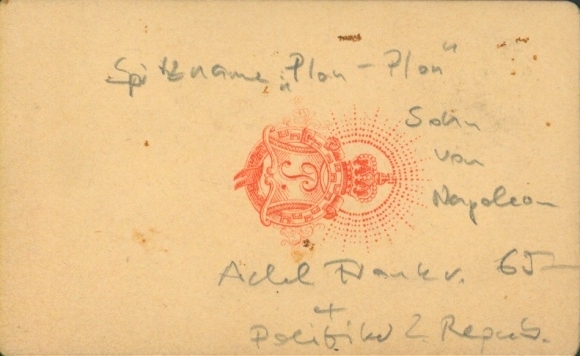 Spitzname „Plon-Plon“
Sohn
von
Napoleon
Adel Frankr. 65-
+
Politiker 2. Repub.